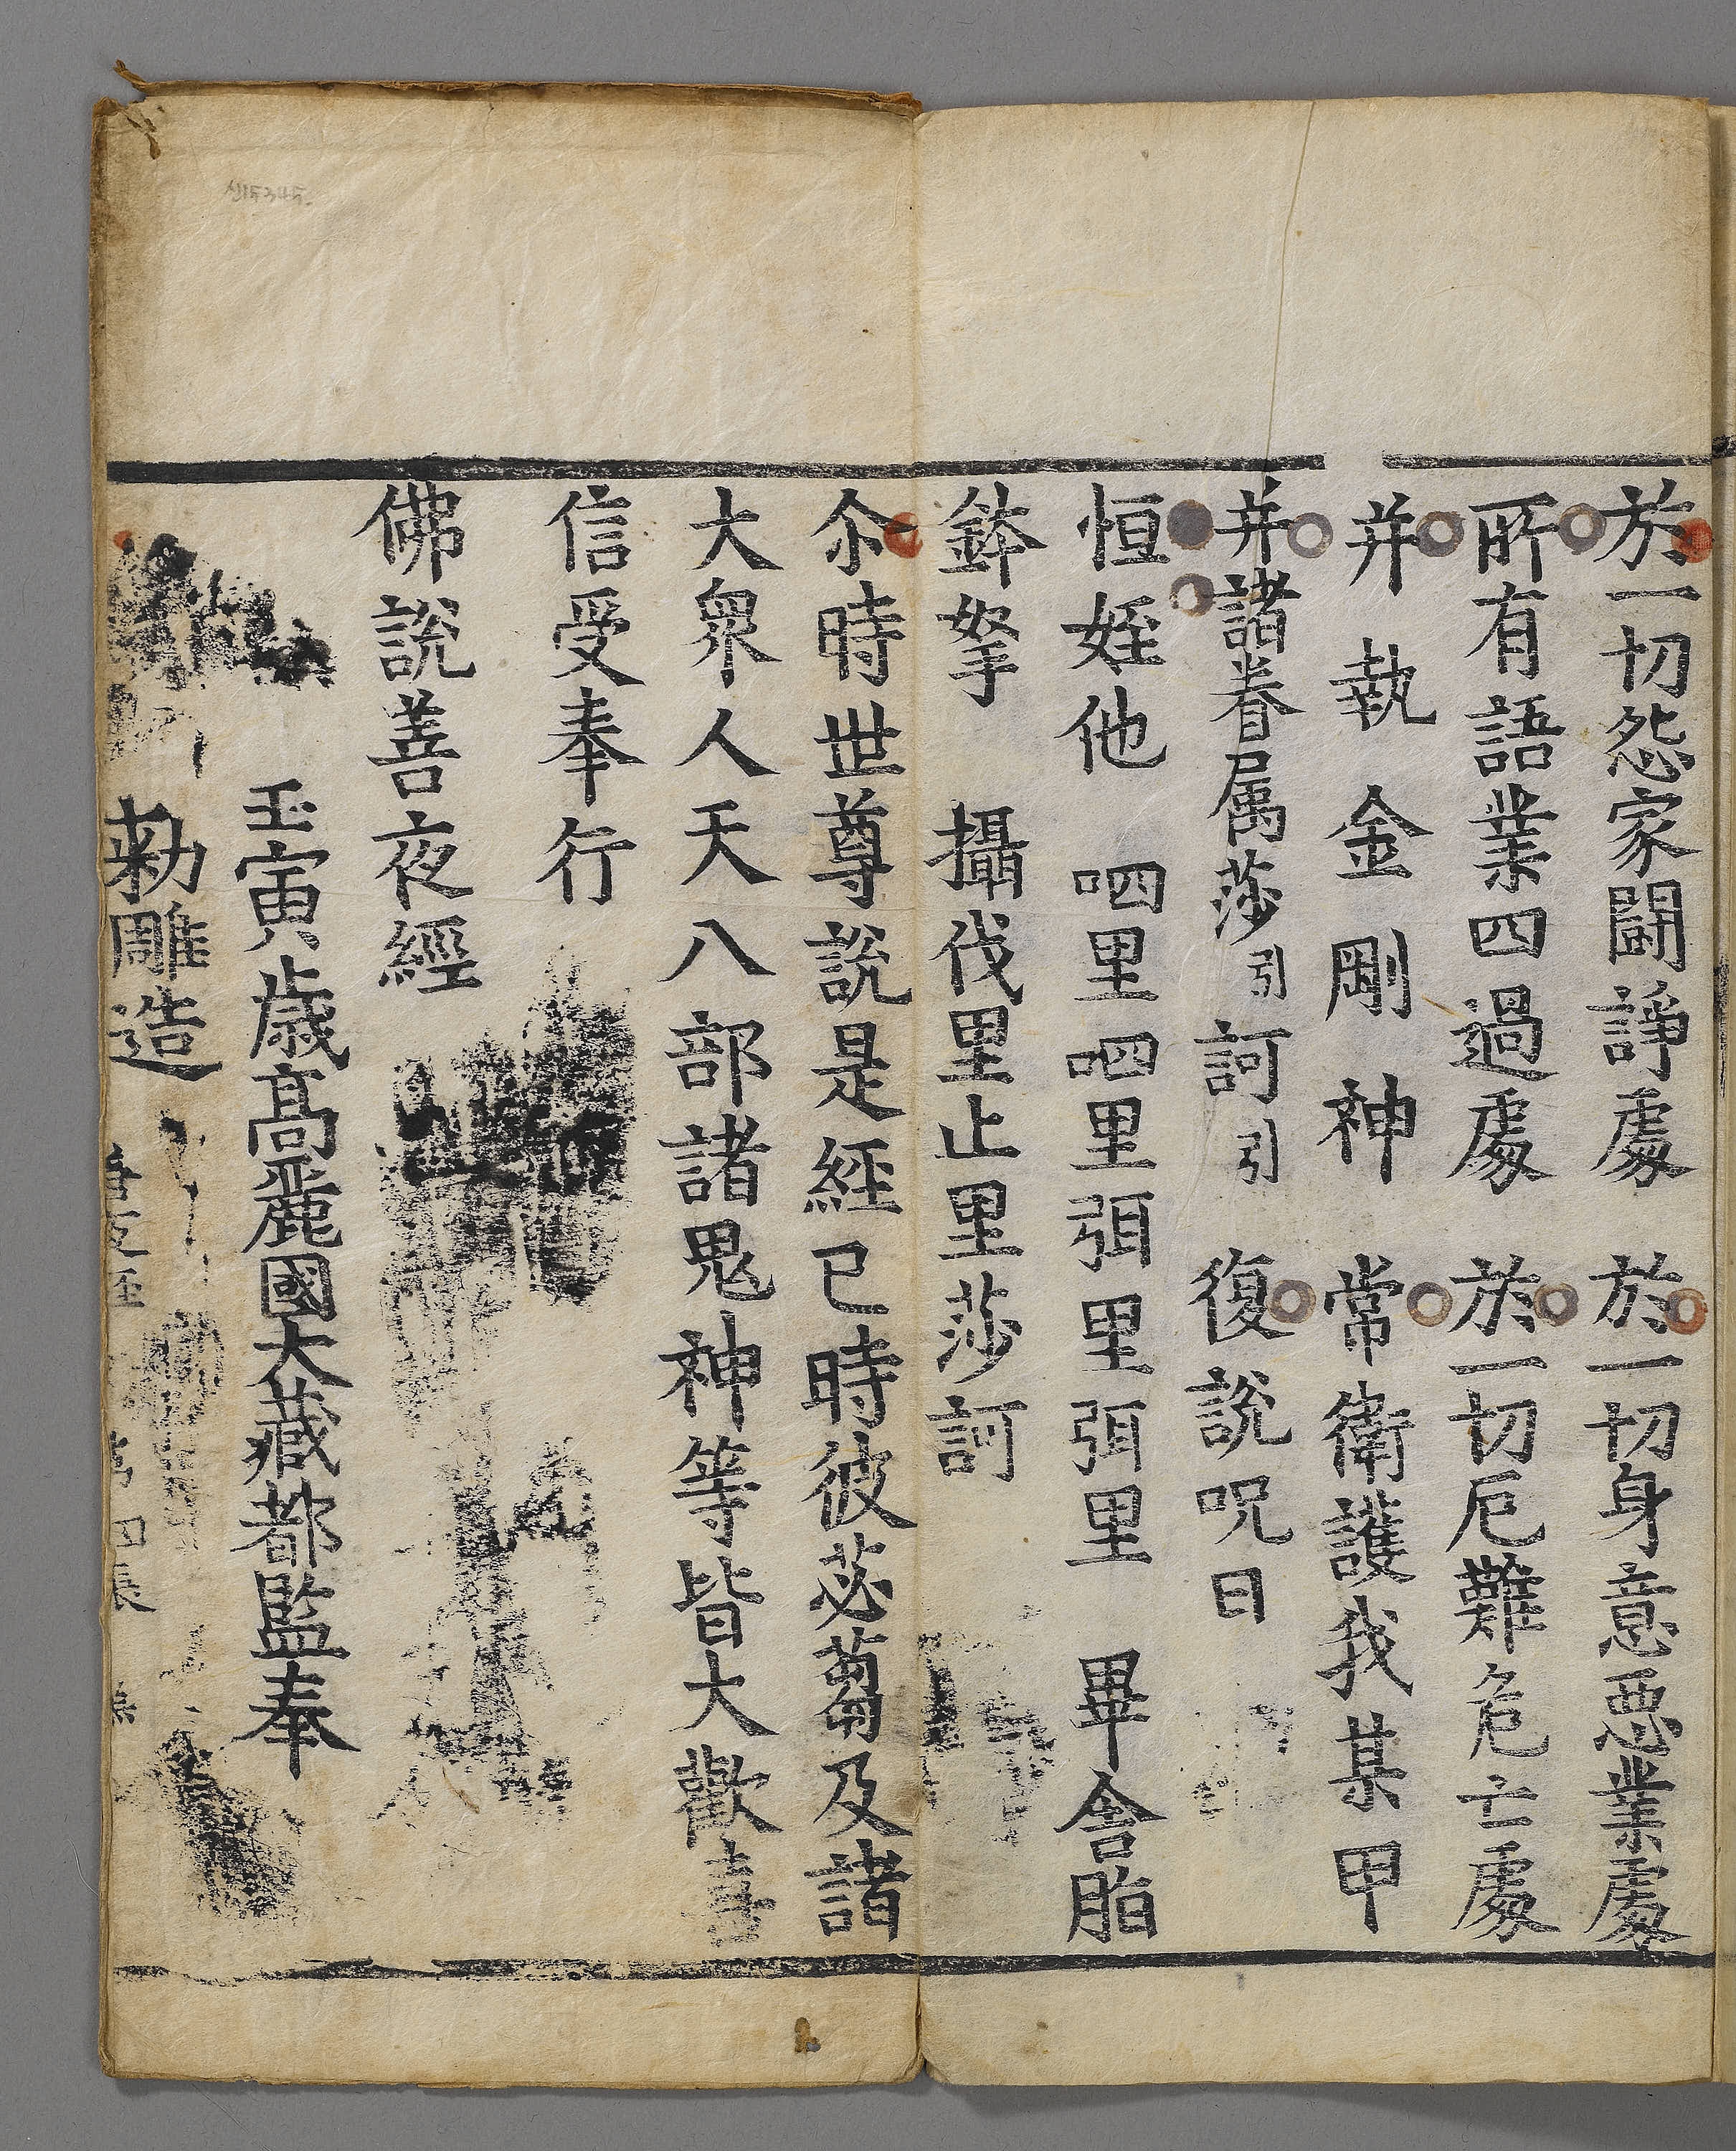 於一切怨家鬪諍處 於一切身意惡業處
所有語業四過處 於一切厄難危亡處
并執金剛神 常衛護我某甲
并諸眷属莎引訶引 復說呪曰
恒姪他 呬里呬里弭里弭里 畢舍脂
鉢拏 攝伐里止里莎訶
尒時世尊說是經已時彼苾蒭及諸
大衆人天八部諸鬼神等皆大歡喜
信受奉行
佛說善夜經
壬寅歲高麗國大藏都監奉
勑雕造